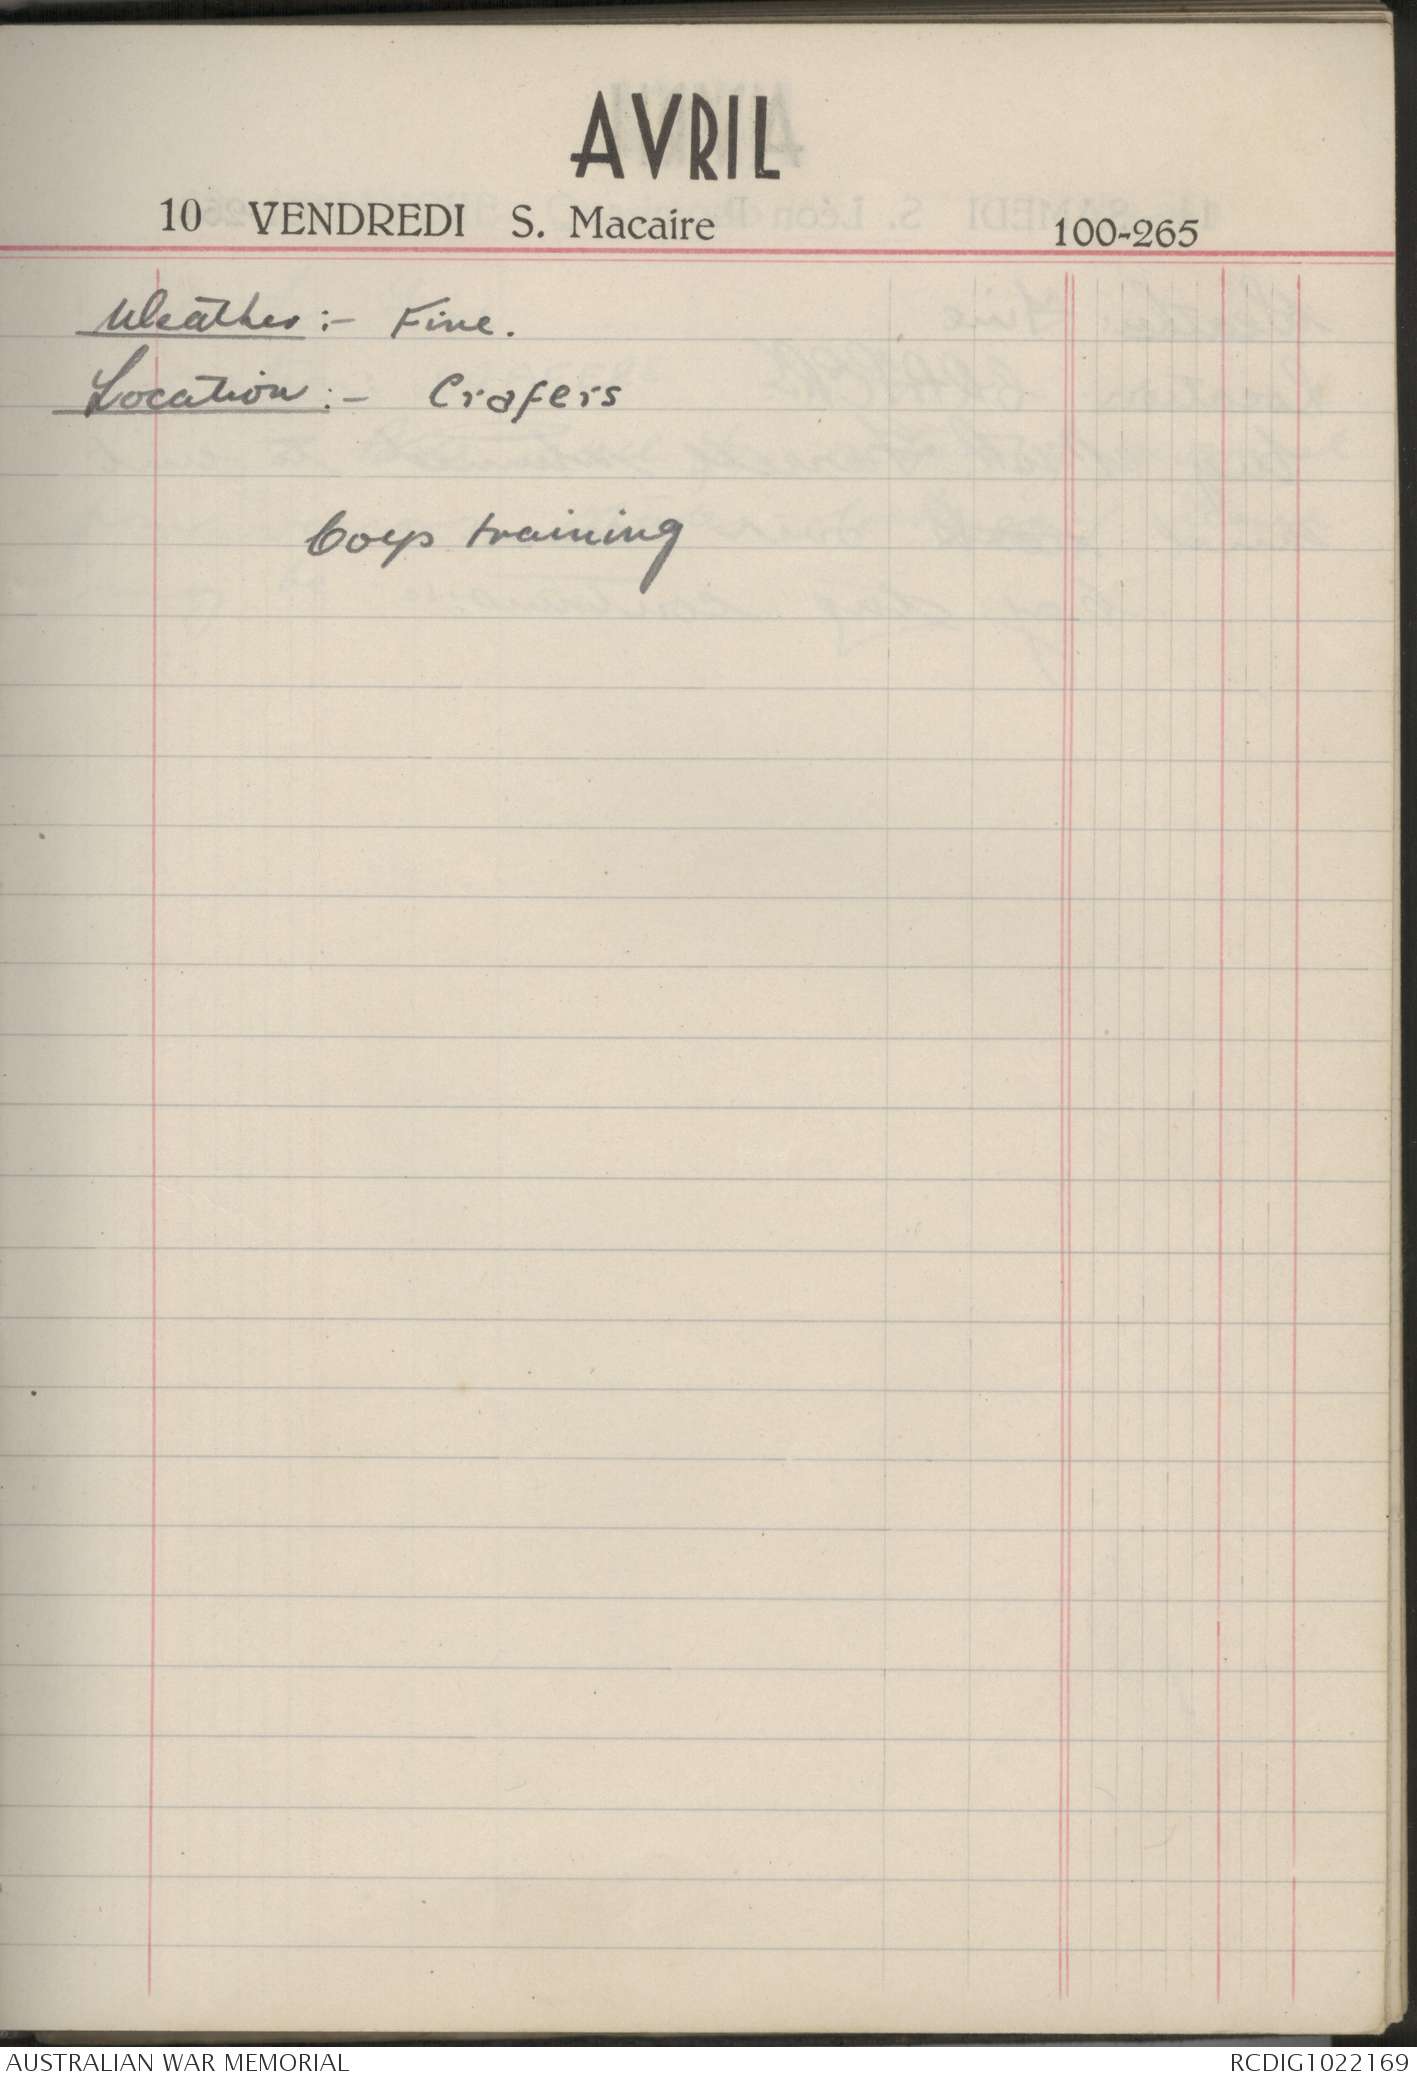 AVRIL
10 VENDREDI S. Macaire 100-265
Weather :- Fine.
Location :- Crafers
Coys training
AUSTRALIAN WAR MEMORIAL RCDIG1022169